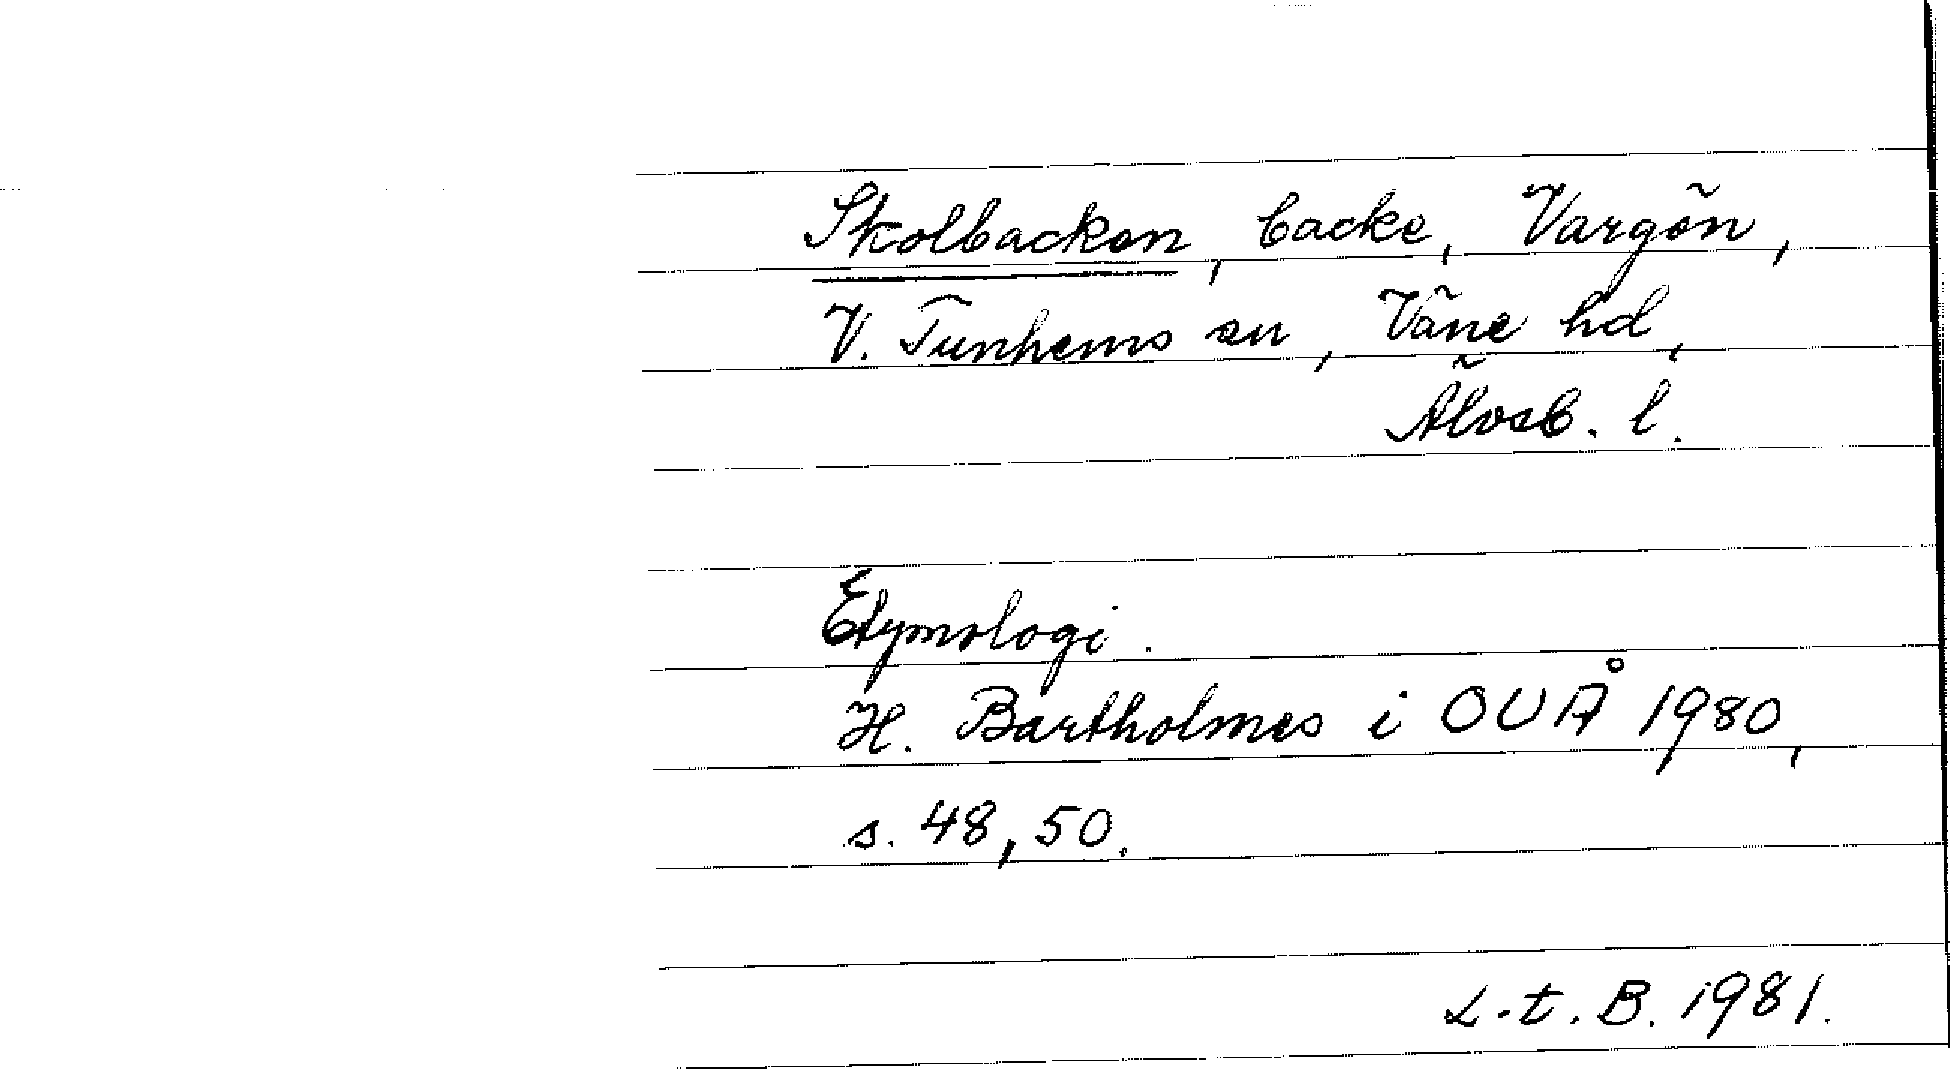 Skolbacken, backe, Vargön,
V. Tunhems sn, Väne hd,
Älvsb. l.
Etymologi.
H. Bartholmes i OUÅ 1980,
s. 48, 50.
L.t.B. 1981.